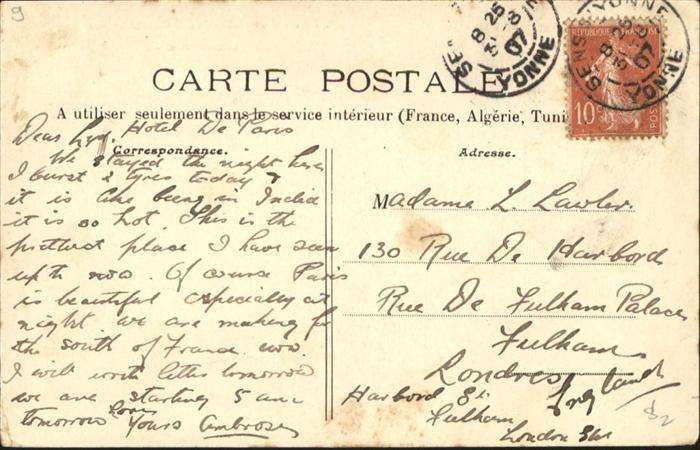 9
SENS YONNE
8 25
31 -8
07
SENS YONNE
8 25
31 -8
07
REPUBLIQUE FRANÇAISE
10
POSTES
CARTE POSTALE
A utiliser seulement dans le service intérieur (France, Algérie, Tuni
Correspondance.
Adresse.
Dear Hotel De Paris
We stayed the night here
I burst 2 tyres today &
it is like being in India
it is so hot. This is the
prettiest place I have seen
up to now. Of course Paris
is beautiful especially at
night we are making for
the south of France now.
I will write letter tomorrow
we are starting 5 am
tomorrow Love
Yours Ambrose
Madame L Lawler
130 Rue De Harbord
Rue De Fulham Palace
Fulham
Londres England
Harbord St.
Fulham
London SW